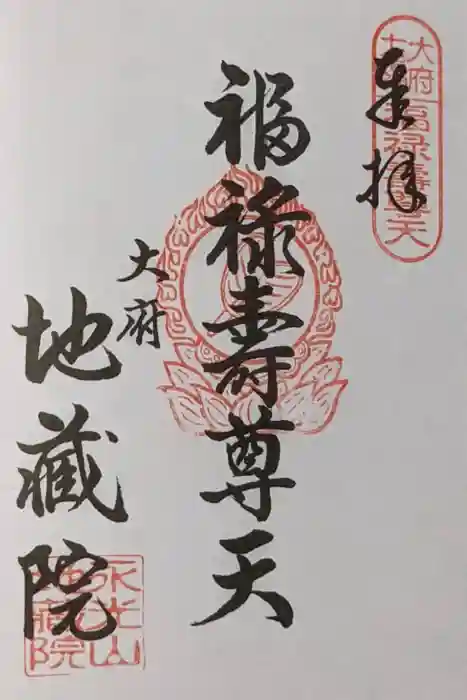 奉拝
大府七福福禄壽尊天
福禄壽尊天
大府
地蔵院
永光山地蔵院